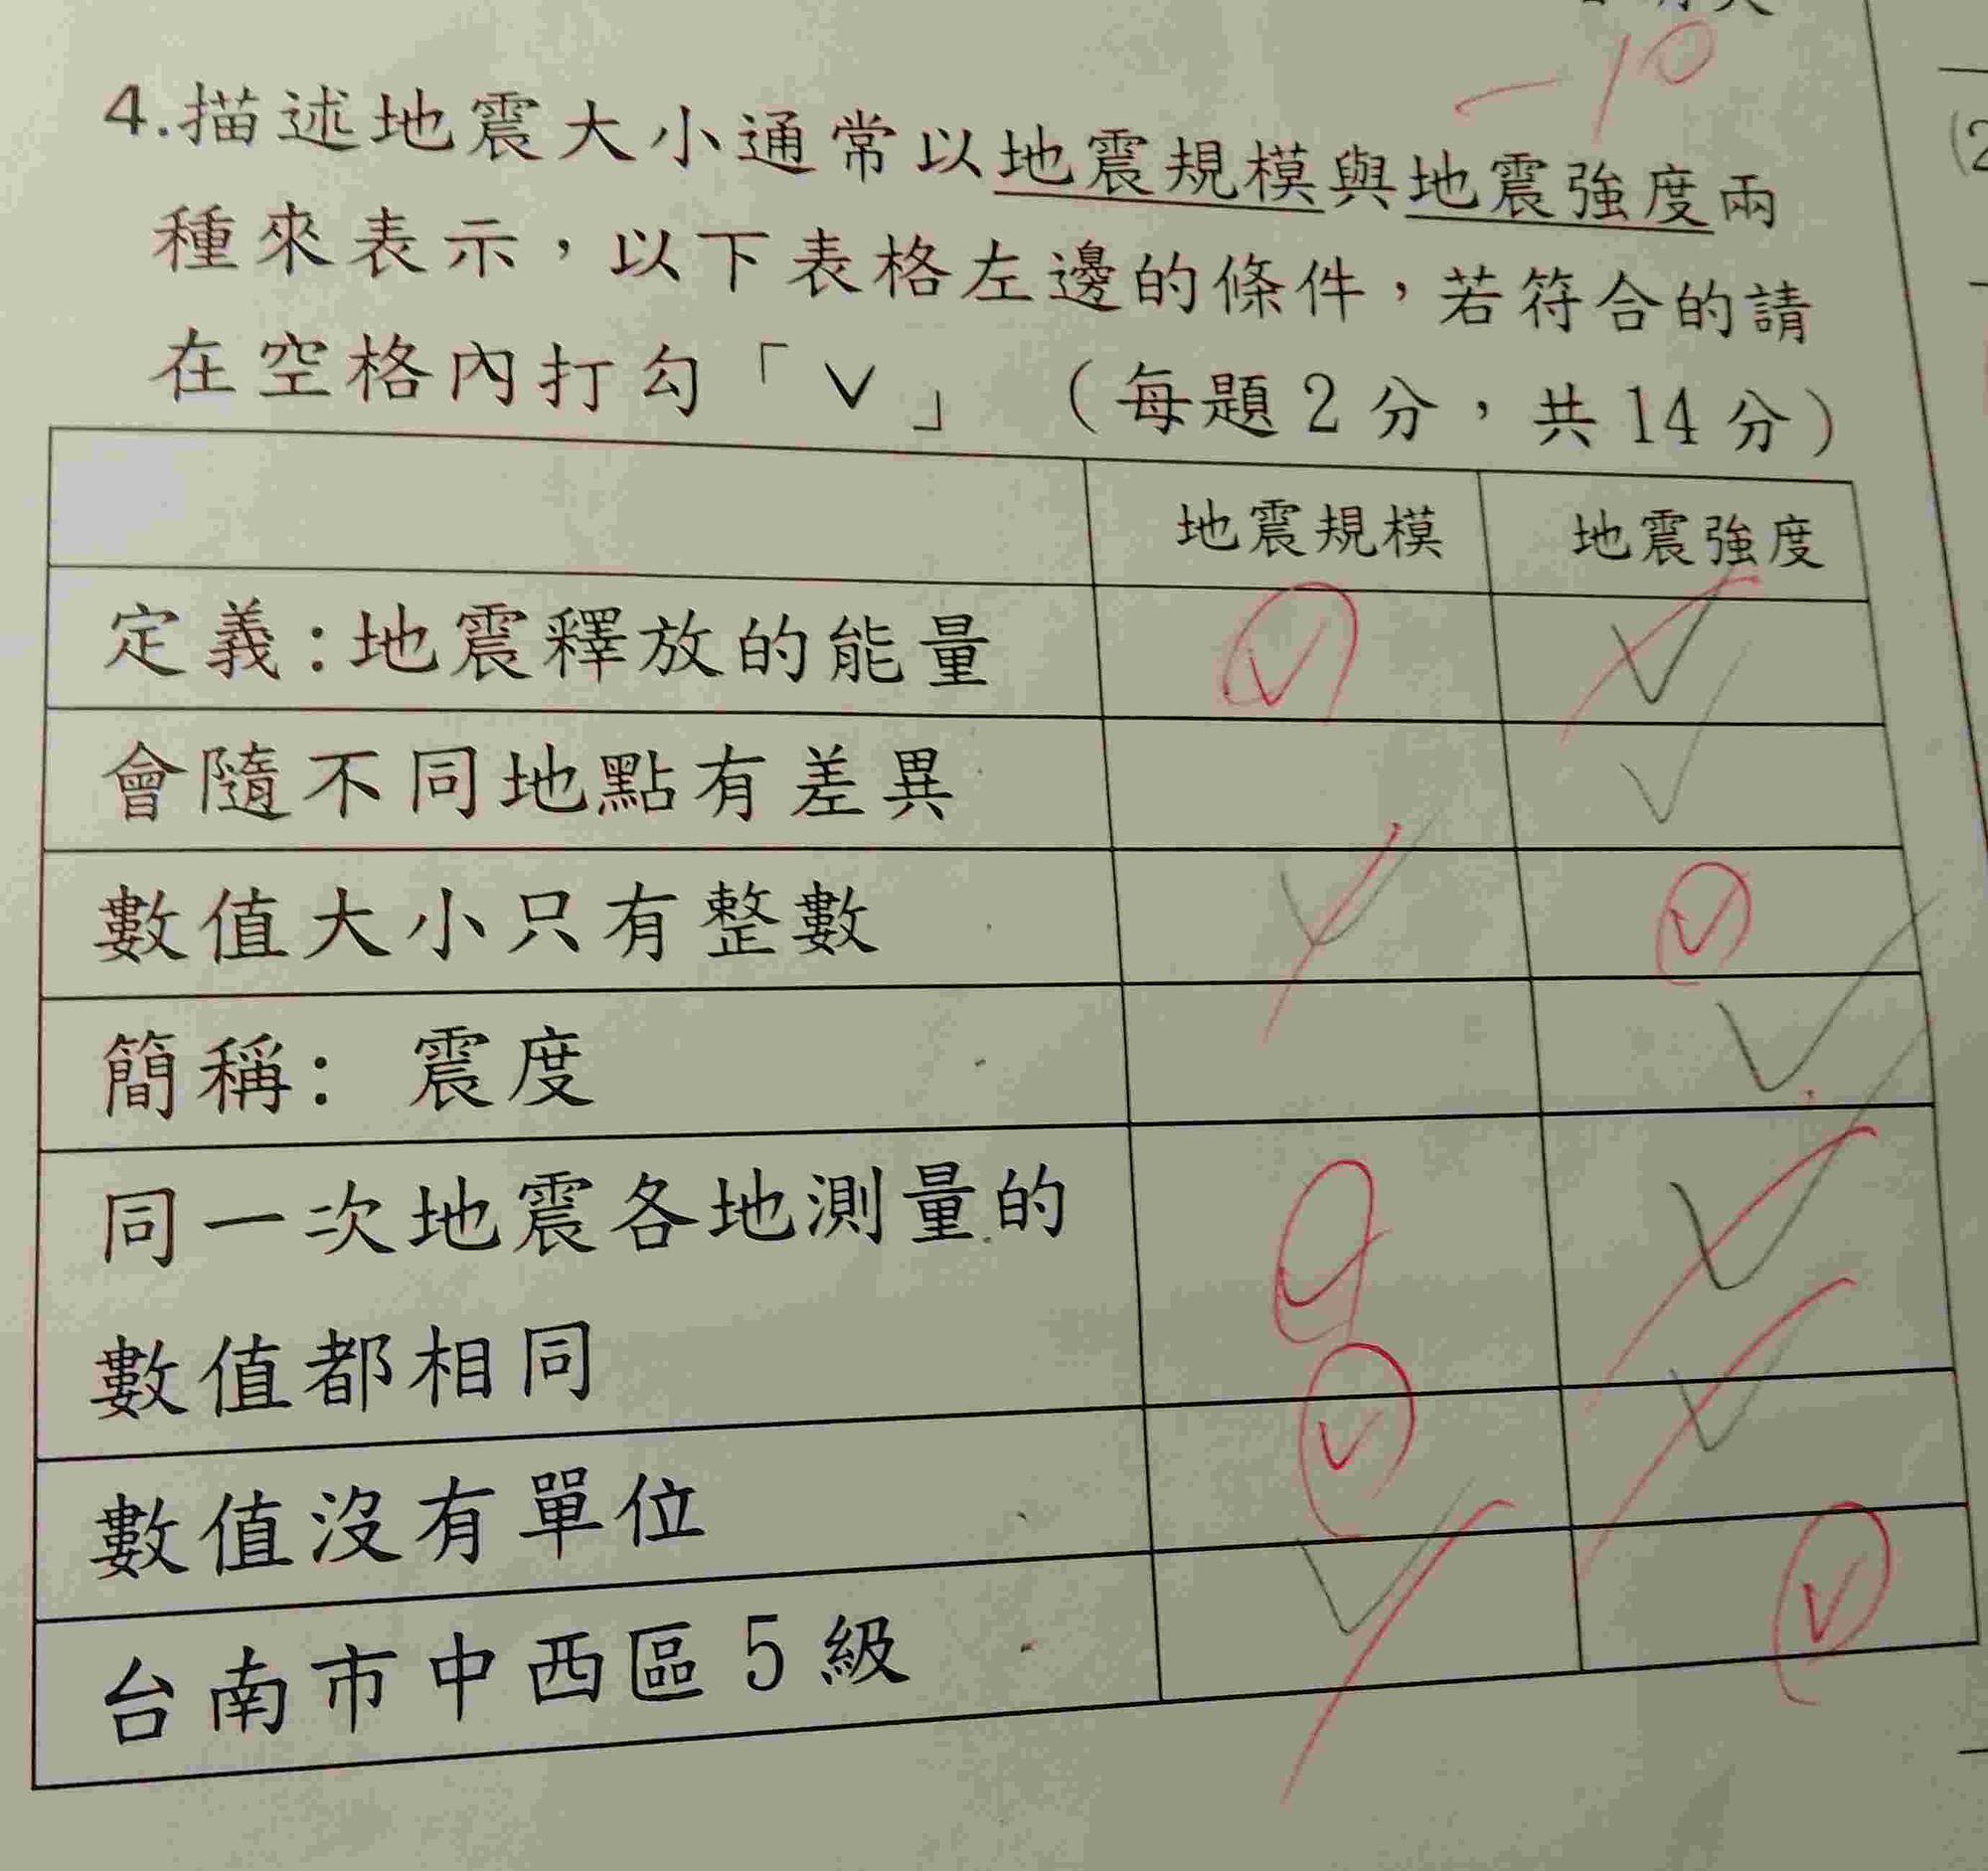 -10
4.描述地震大小通常以地震規模與地震強度兩
種來表示，以下表格左邊的條件，若符合的請
在空格內打勾「∨」（每題2分，共14分）
地震規模 地震強度
定義：地震釋放的能量 ✓ ✓
會隨不同地點有差異 ✓
數值大小只有整數 ✓ ✓
簡稱： 震度 ✓
同一次地震各地測量的
數值都相同 ✓ ✓
數值沒有單位 ✓ ✓
台南市中西區5級 ✓ ✓
(2